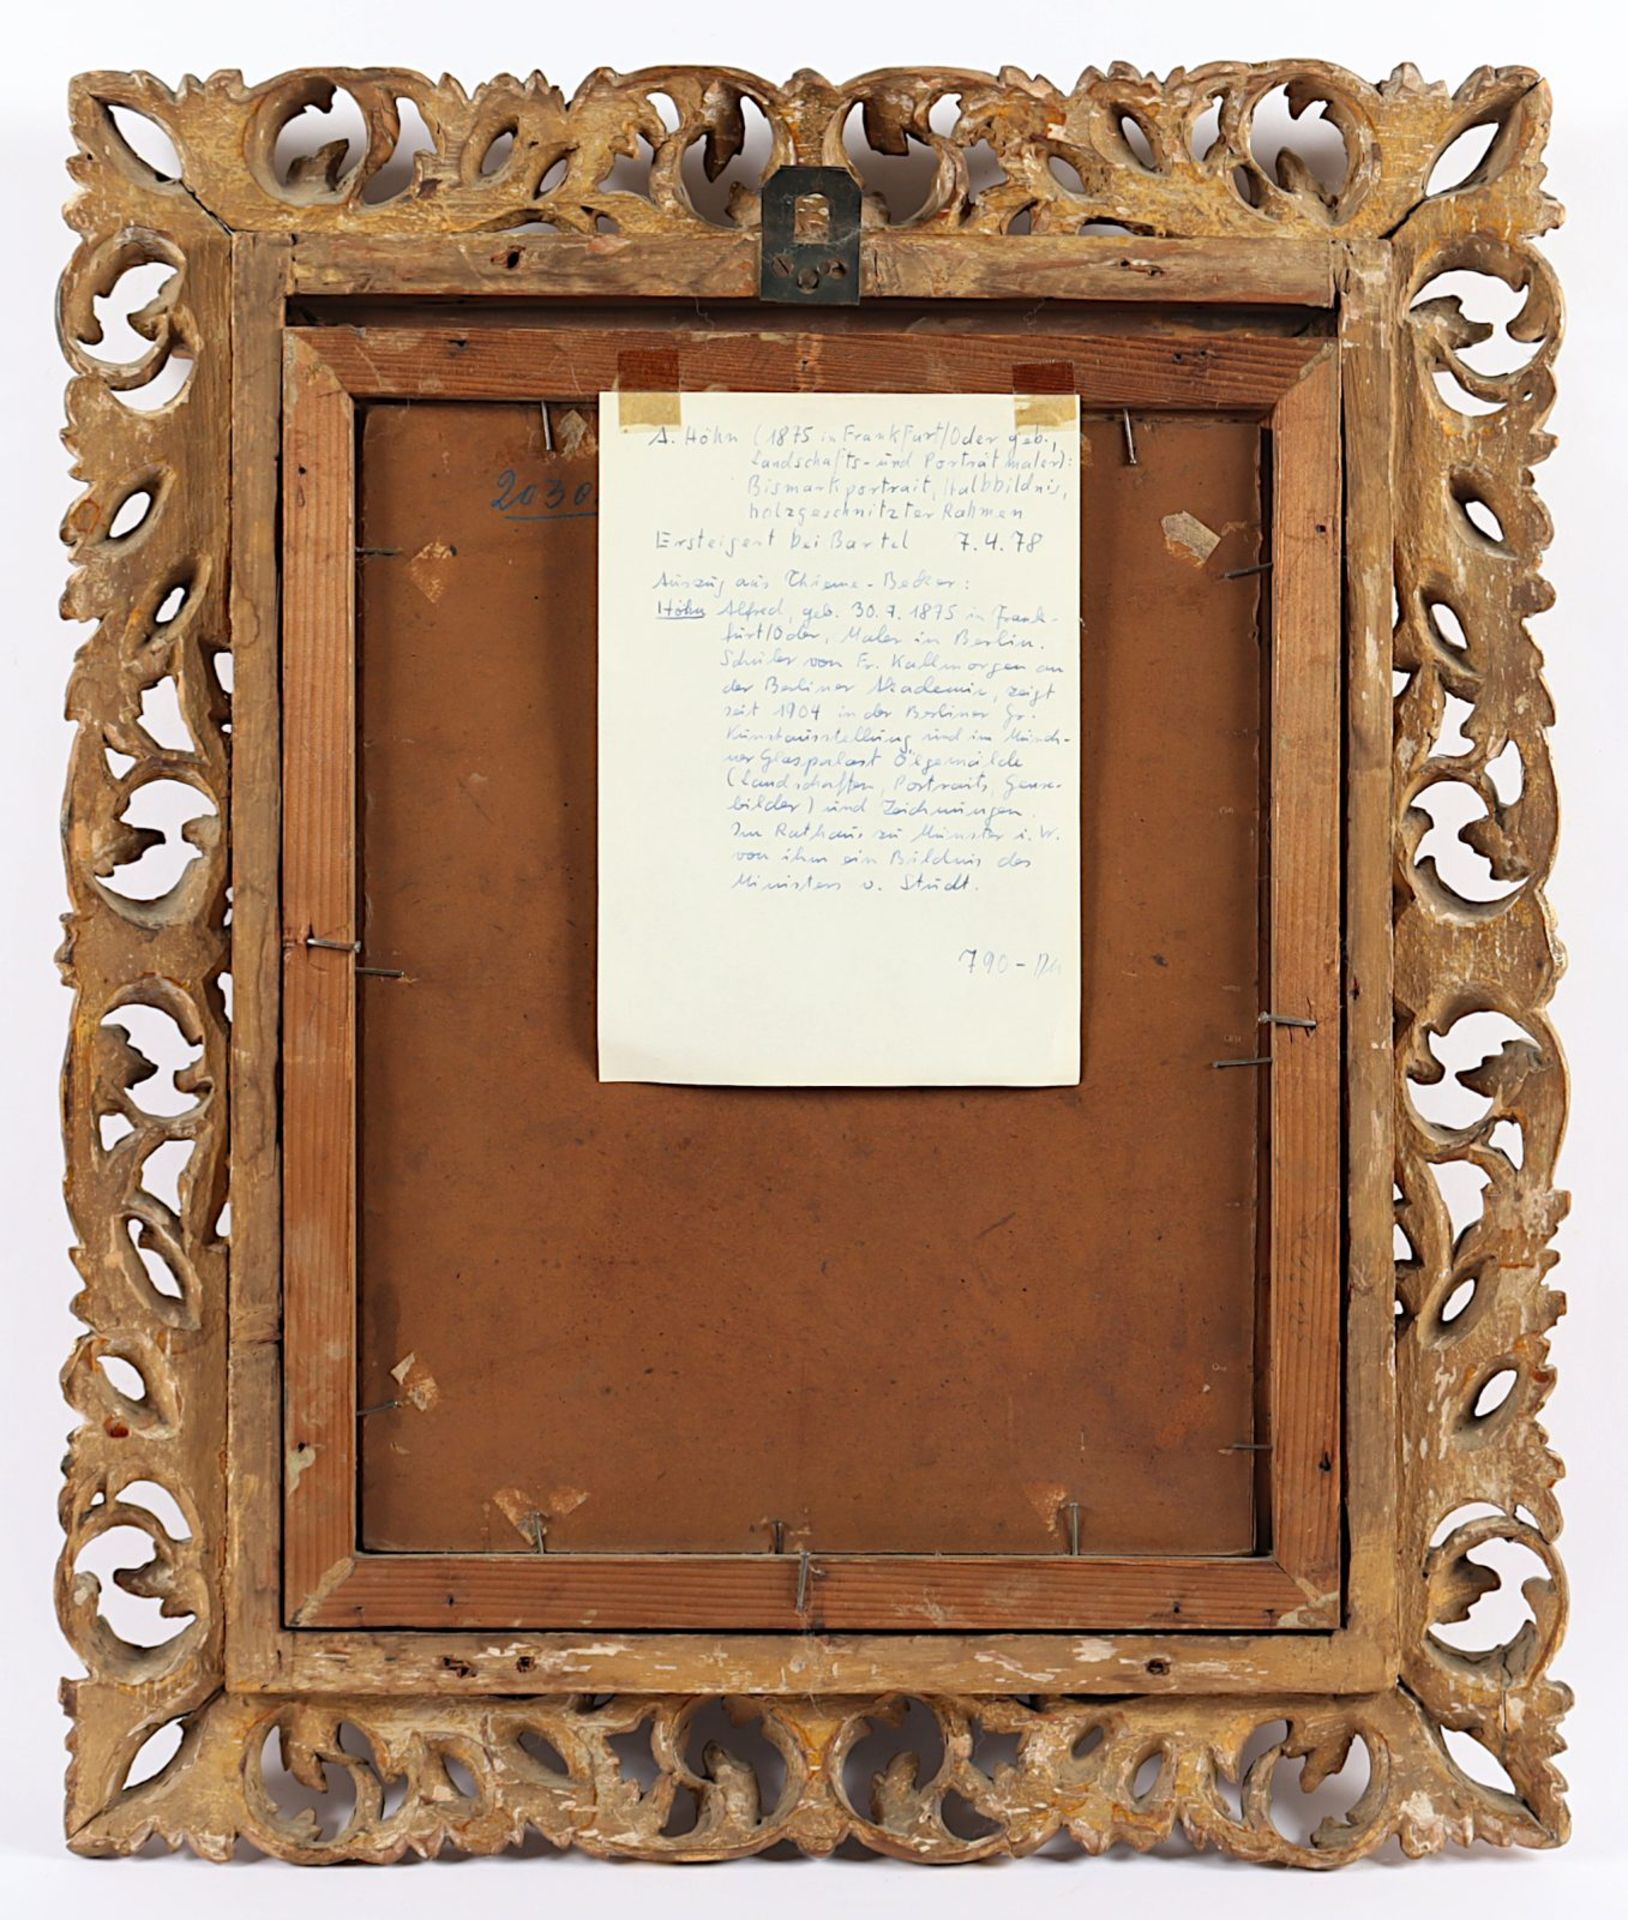 2030
A. Höhn (1875 in Frankfurt/Oder geb.,
Landschafts- und Porträtmaler):
Bismarkportrait, Halbbildnis,
holzgeschnitzter Rahmen
Ersteigert bei Bartel 7.4.78
Auszug aus Thieme-Becker:
Höhn Alfred, geb. 30.7.1875 in Frank-
furt/Oder, Maler in Berlin.
Schüler von Fr. Kallmorgen an
der Berliner Akademie, zeigt
seit 1904 in der Berliner Gr.
Kunstausstellung und im Münch-
ner Glaspalast Ölgemälde
(Landschaften, Portraits, Genre-
bilder) und Zeichnungen.
Im Rathaus zu Münster i. W.
von ihm ein Bildnis des
Ministers v. Studt.
790 -